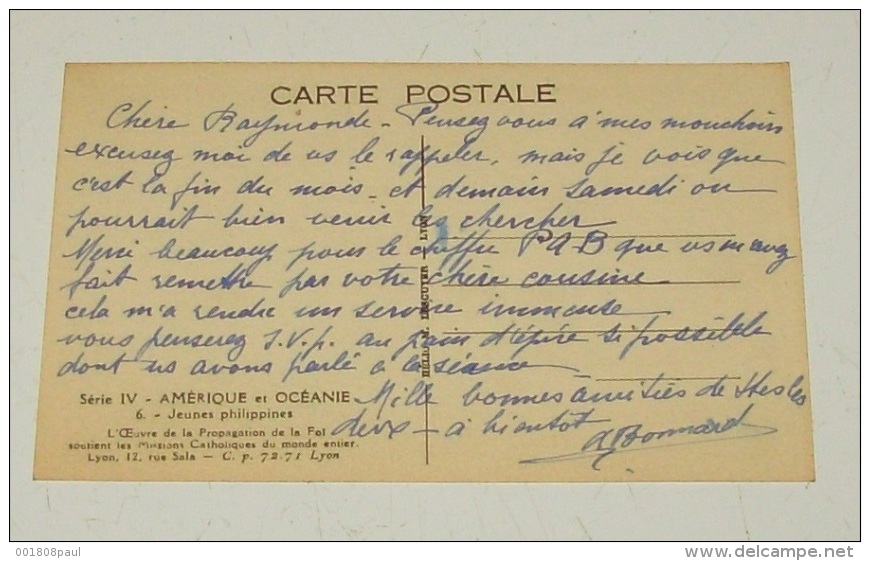 CARTE POSTALE
Chère Raymonde - Pensez vous à mes mouchoirs
excusez moi de vs le rappeler, mais je vois que
c'est la fin du mois - et demain Samedi on
pourrait bien venir les chercher
Merci beaucoup pour le chiffre P A B que vs m'avez
fait remettre par votre chère cousine
cela m'a rendre un service immense
vous penserez S.V.p. au pain d'épice si possible
dont vs avons parlé à la séance
Mille bonnes amitiés de ttes les
deux - à bientot
Bonnard
Série IV - AMÉRIQUE et OCÉANIE
6. - Jeunes philippines
L'Œuvre de la Propagation de la Foi
soutient les Missions Catholiques du monde entier.
Lyon, 12, rue Sala - C. p. 72-71 Lyon
HÉLIO M. LESCUYER - LYON
001808paul
www.delcampe.net